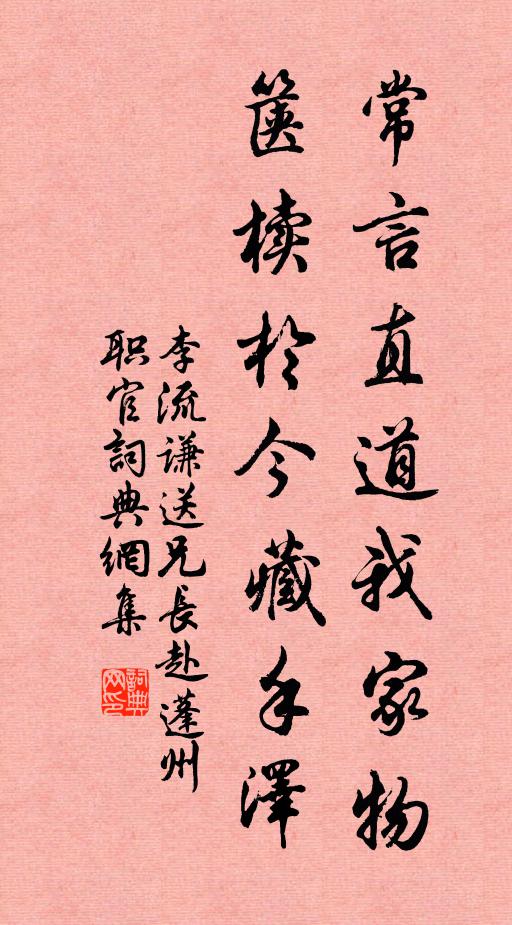 常言直道我家物
箧椟於今藏手澤
李流謙送兄長赴蓬州
职官詞典網集
詞典网印